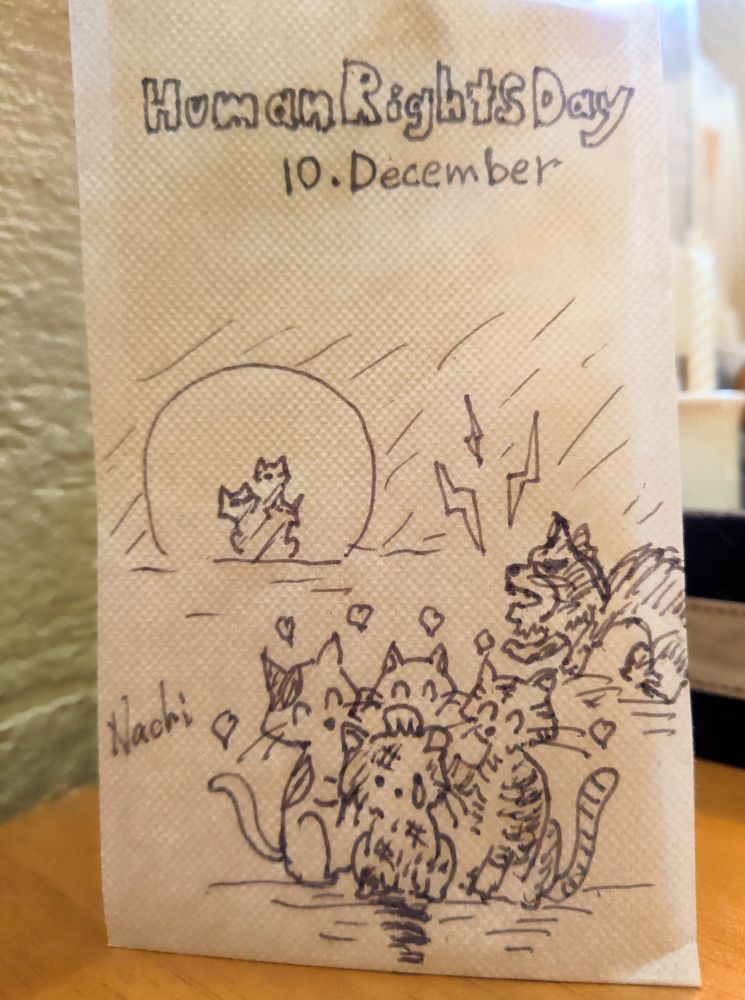 Human Rights Day
10. December
Nachi